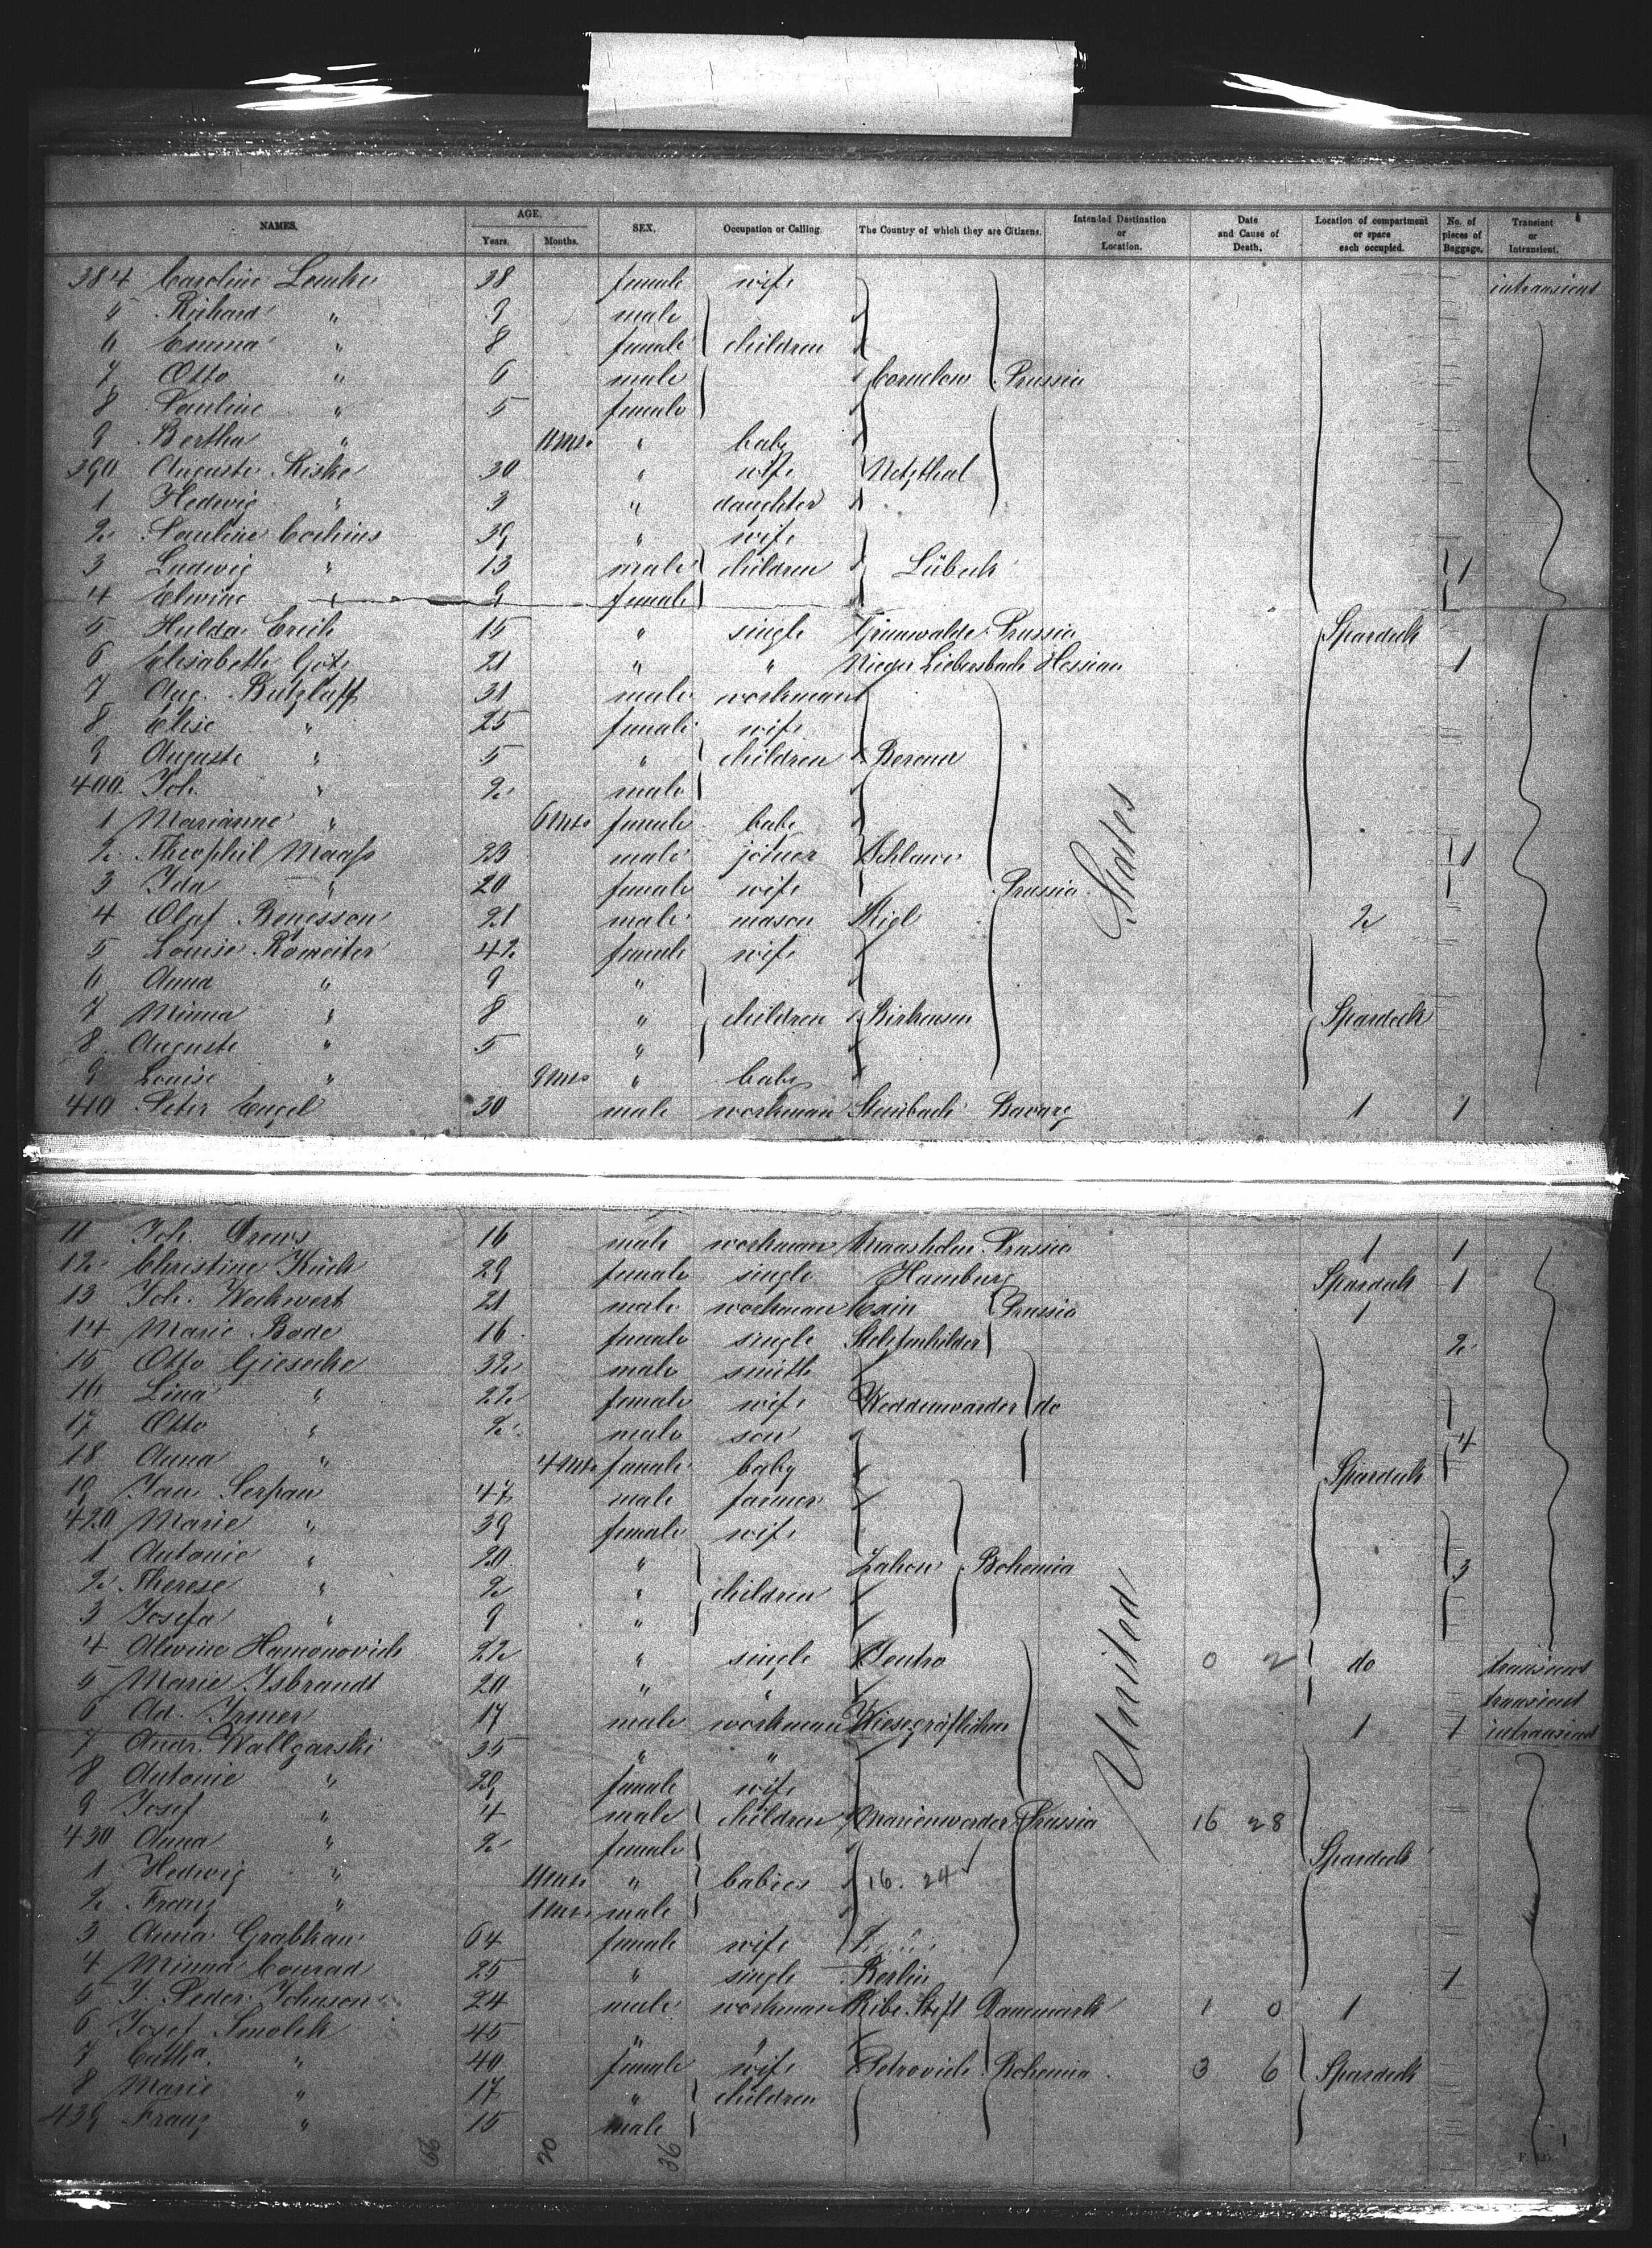 NAMES. AGE. Years. Months. SEX. Occupation or Calling. The Country of which they are Citizens. Intended Destination or Location. Date and Cause of Death. Location of compartment or space each occupied. No. of pieces of Baggage. Transient or Intransient.
384 Caroline Lemke 38 female wife intransient
5 Richard " 9 male
6 Emma " 8 female children
7 Otto " 6 male Prussia
8 Pauline " 5 female
9 Bertha " 11 mts " baby
390 Auguste Kiske 30 " wife Netzthal
1 Hedwig " 3 " daughter
2 Pauline 39 " wife
3 Ludwig " 13 male children Lübeck 1
4 Elwine " 9 female
5 Hulda Erich 15 " single Grunwalde Prussia Spardeck
6 Elisabeth Götz 21 " " Nieger Liebersbach Hessian 1
7 Aug. Butzlaff 31 male workman
8 Elise " 25 female wife
9 Auguste " 5 " children
400 Joh. " 2 male
1 Marianne " 6 mts female babe
2 Theophil Maass 23 male joiner Schlawe 1
3 Ida " 20 female wife Prussia
4 Olaf Bengsson 21 male mason Kiel 2
5 Louise Romeiter 42 female wife
6 Anna " 9 "
7 Minna " 8 " children Spardeck
8 Auguste " 5 "
9 Louise " 9 mts " baby
410 Peter Engel 30 male workman Steinbach Bavary 1 1
States
11 Joh. Drews 16 male workman Maasholm Prussia 1 1
12 Christine Kück 29 female single Hamburg Spardeck 1
13 Joh. Weckwert 21 male workman Exin Prussia 1
14 Marie Bode 16 female single 2
15 Otto Giesecke 32 male smith
16 Lina " 22 female wife Weddenwarder do
17 Otto " 2 male son 4
18 Anna " 4 mts female baby Spardeck
19 Jan Serpan 47 male farmer
420 Marie " 39 female wife
1 Antonie " 20 " Zahon Bohemia 3
2 Therese " 2 " children
3 Josefa " 9 "
4 Alwine Hamonovich 22 " single 0 2 do transient
5 Marie Isbrandt 20 " " transient
6 Ad. Irmer 17 male workman 1 1 intransient
7 Andr. Wallgarski 35 " "
8 Antonie " 29 female wife
9 Josef " 4 male children Marienwerder Prussia 16 28
430 Anna " 2 female Spardeck
1 Hedwig " 11 mts " babies 16. 24
2 Franz " 1 mts male
3 Anna Grabkan 64 female wife
4 Minna Conrad 25 " single Berlin 1
5 J. Peder Johnson 24 male workman Ribe Stift Danmark 1 0 1
6 Josef Smolek 45 " "
7 Catha " 40 female wife Petrovich Bohemia 3 6 Spardeck
8 Marie " 17 " children
439 Franz " 15 male
United
56 20 36